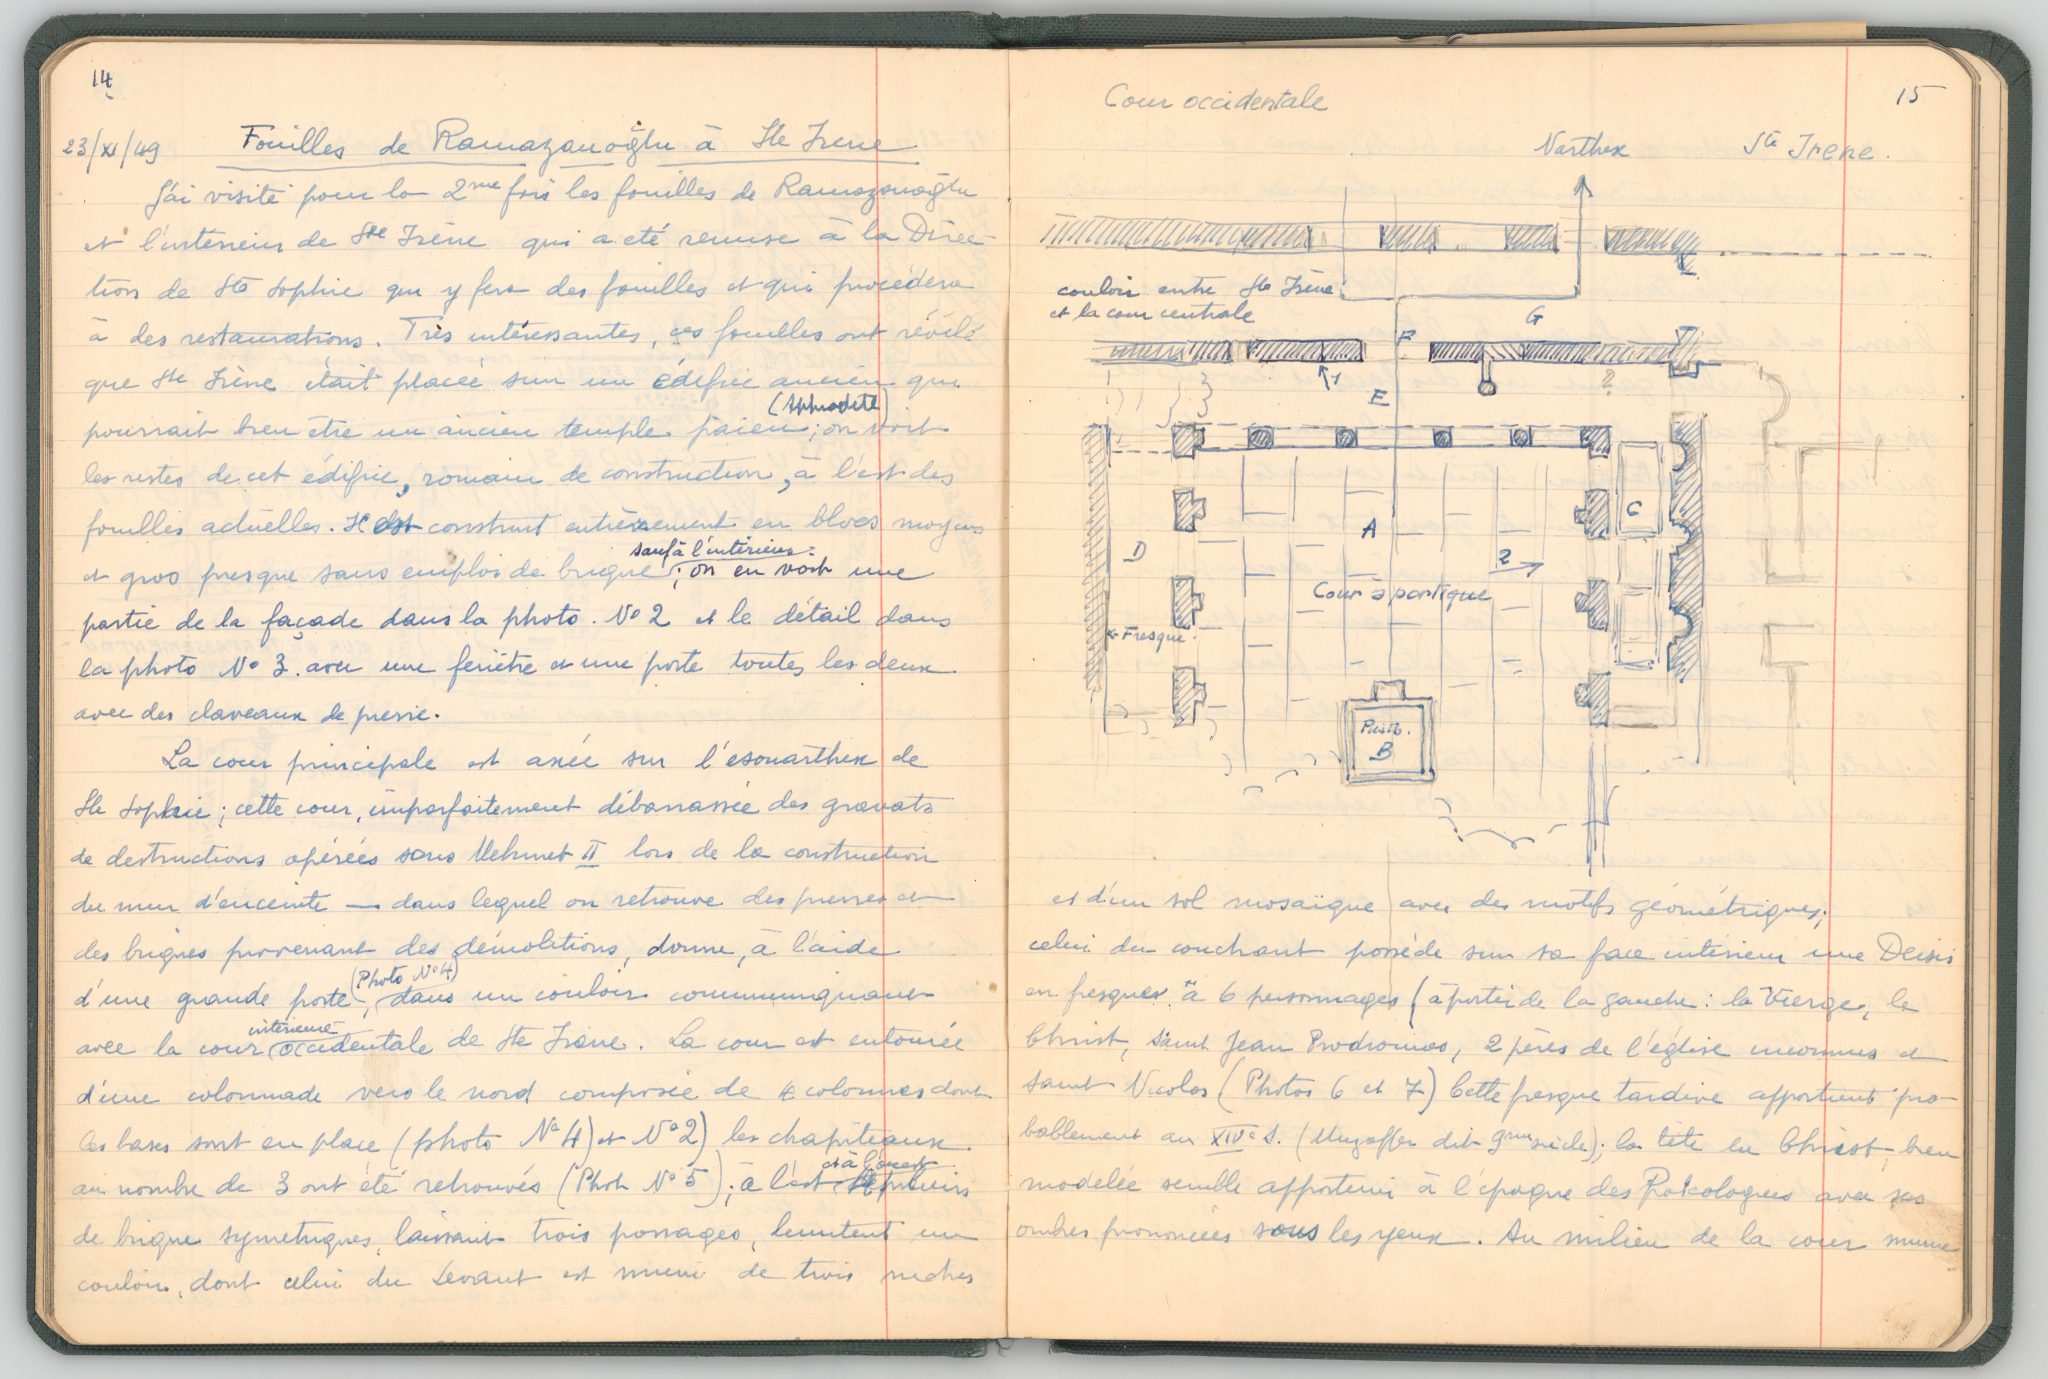 14
23/XI/49 Fouilles de Ramazanoğlu à Ste Irene
J'ai visité pour la 2me fois les fouilles de Ramazanoğlu
et l'intérieur de Ste Irène qui a été remise à la Direc-
tion de Ste Sophie qui y fera des fouilles et qui procédera
à des restaurations. Très intéressantes, ces fouilles ont révélé
que Ste Irène était placée sur un édifice ancien qui
(Aphrodite)
pourrait bien être un ancien temple païen; on voit
les restes de cet édifice, romain de construction, à l'est des
fouilles actuelles. Il est construit entièrement en blocs moyens
sauf à l'intérieur:
et gros presque sans emploi de brique; on en voit une
partie de la façade dans la photo. No 2 et le détail dans
la photo No 3. avec une fenêtre et une porte toutes les deux
avec des claveaux de pierre.
La cour principale est axée sur l'esonarthex de
Ste Sophie; cette cour, imparfaitement débarrassée des gravats
de destructions opérées sous Mehmet II lors de la construction
du mur d'enceinte — dans lequel on retrouve des pierres et
des briques provenant des démolitions, donne, à l'aide
(Photo No 4)
d'une grande porte, dans un couloir communiquant
intérieure
avec la cour occidentale de Ste Irène. La cour est entourée
d'une colonnade vers le nord composée de 4 colonnes dont
les bases sont en place (photo No 4) et No 2) les chapiteaux
et à l'ouest
au nombre de 3 ont été retrouvés (Phot No 5); à l'est piliers
de brique symetriques, laissant trois passages, limitent un
couloir, dont celui du Levant est muni de trois niches
15
Cour occidentale
Narthex Ste Irene.
couloir entre Ste Irène
et la cour centrale
G
F
1
?
E
C
A
D
2
Cour à portique
← Fresque.
B
et d'un sol mosaïque avec des motifs géométriques;
celui du couchant possède sur sa face intérieur une Deisis
en fresques à 6 personnages (à partir de la gauche: la Vierge, le
Christ, saint Jean Prodromos, 2 pères de l'église inconnus et
saint Nicolas (Photos 6 et 7) Cette fresque tardive appartient pro-
bablement au XIVe s. (Muzaffer dit 9me siècle); la tête du Christ, bien
modelée semble appartenir à l'époque des Paléologues avec ses
ombres prononcées sous les yeux. Au milieu de la cour munie